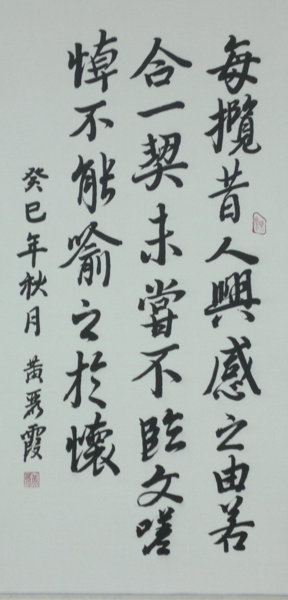 每攬昔人興感之由若
合一契未嘗不臨文嗟
悼不能喻之於懷
癸巳年秋月 黃秀霞